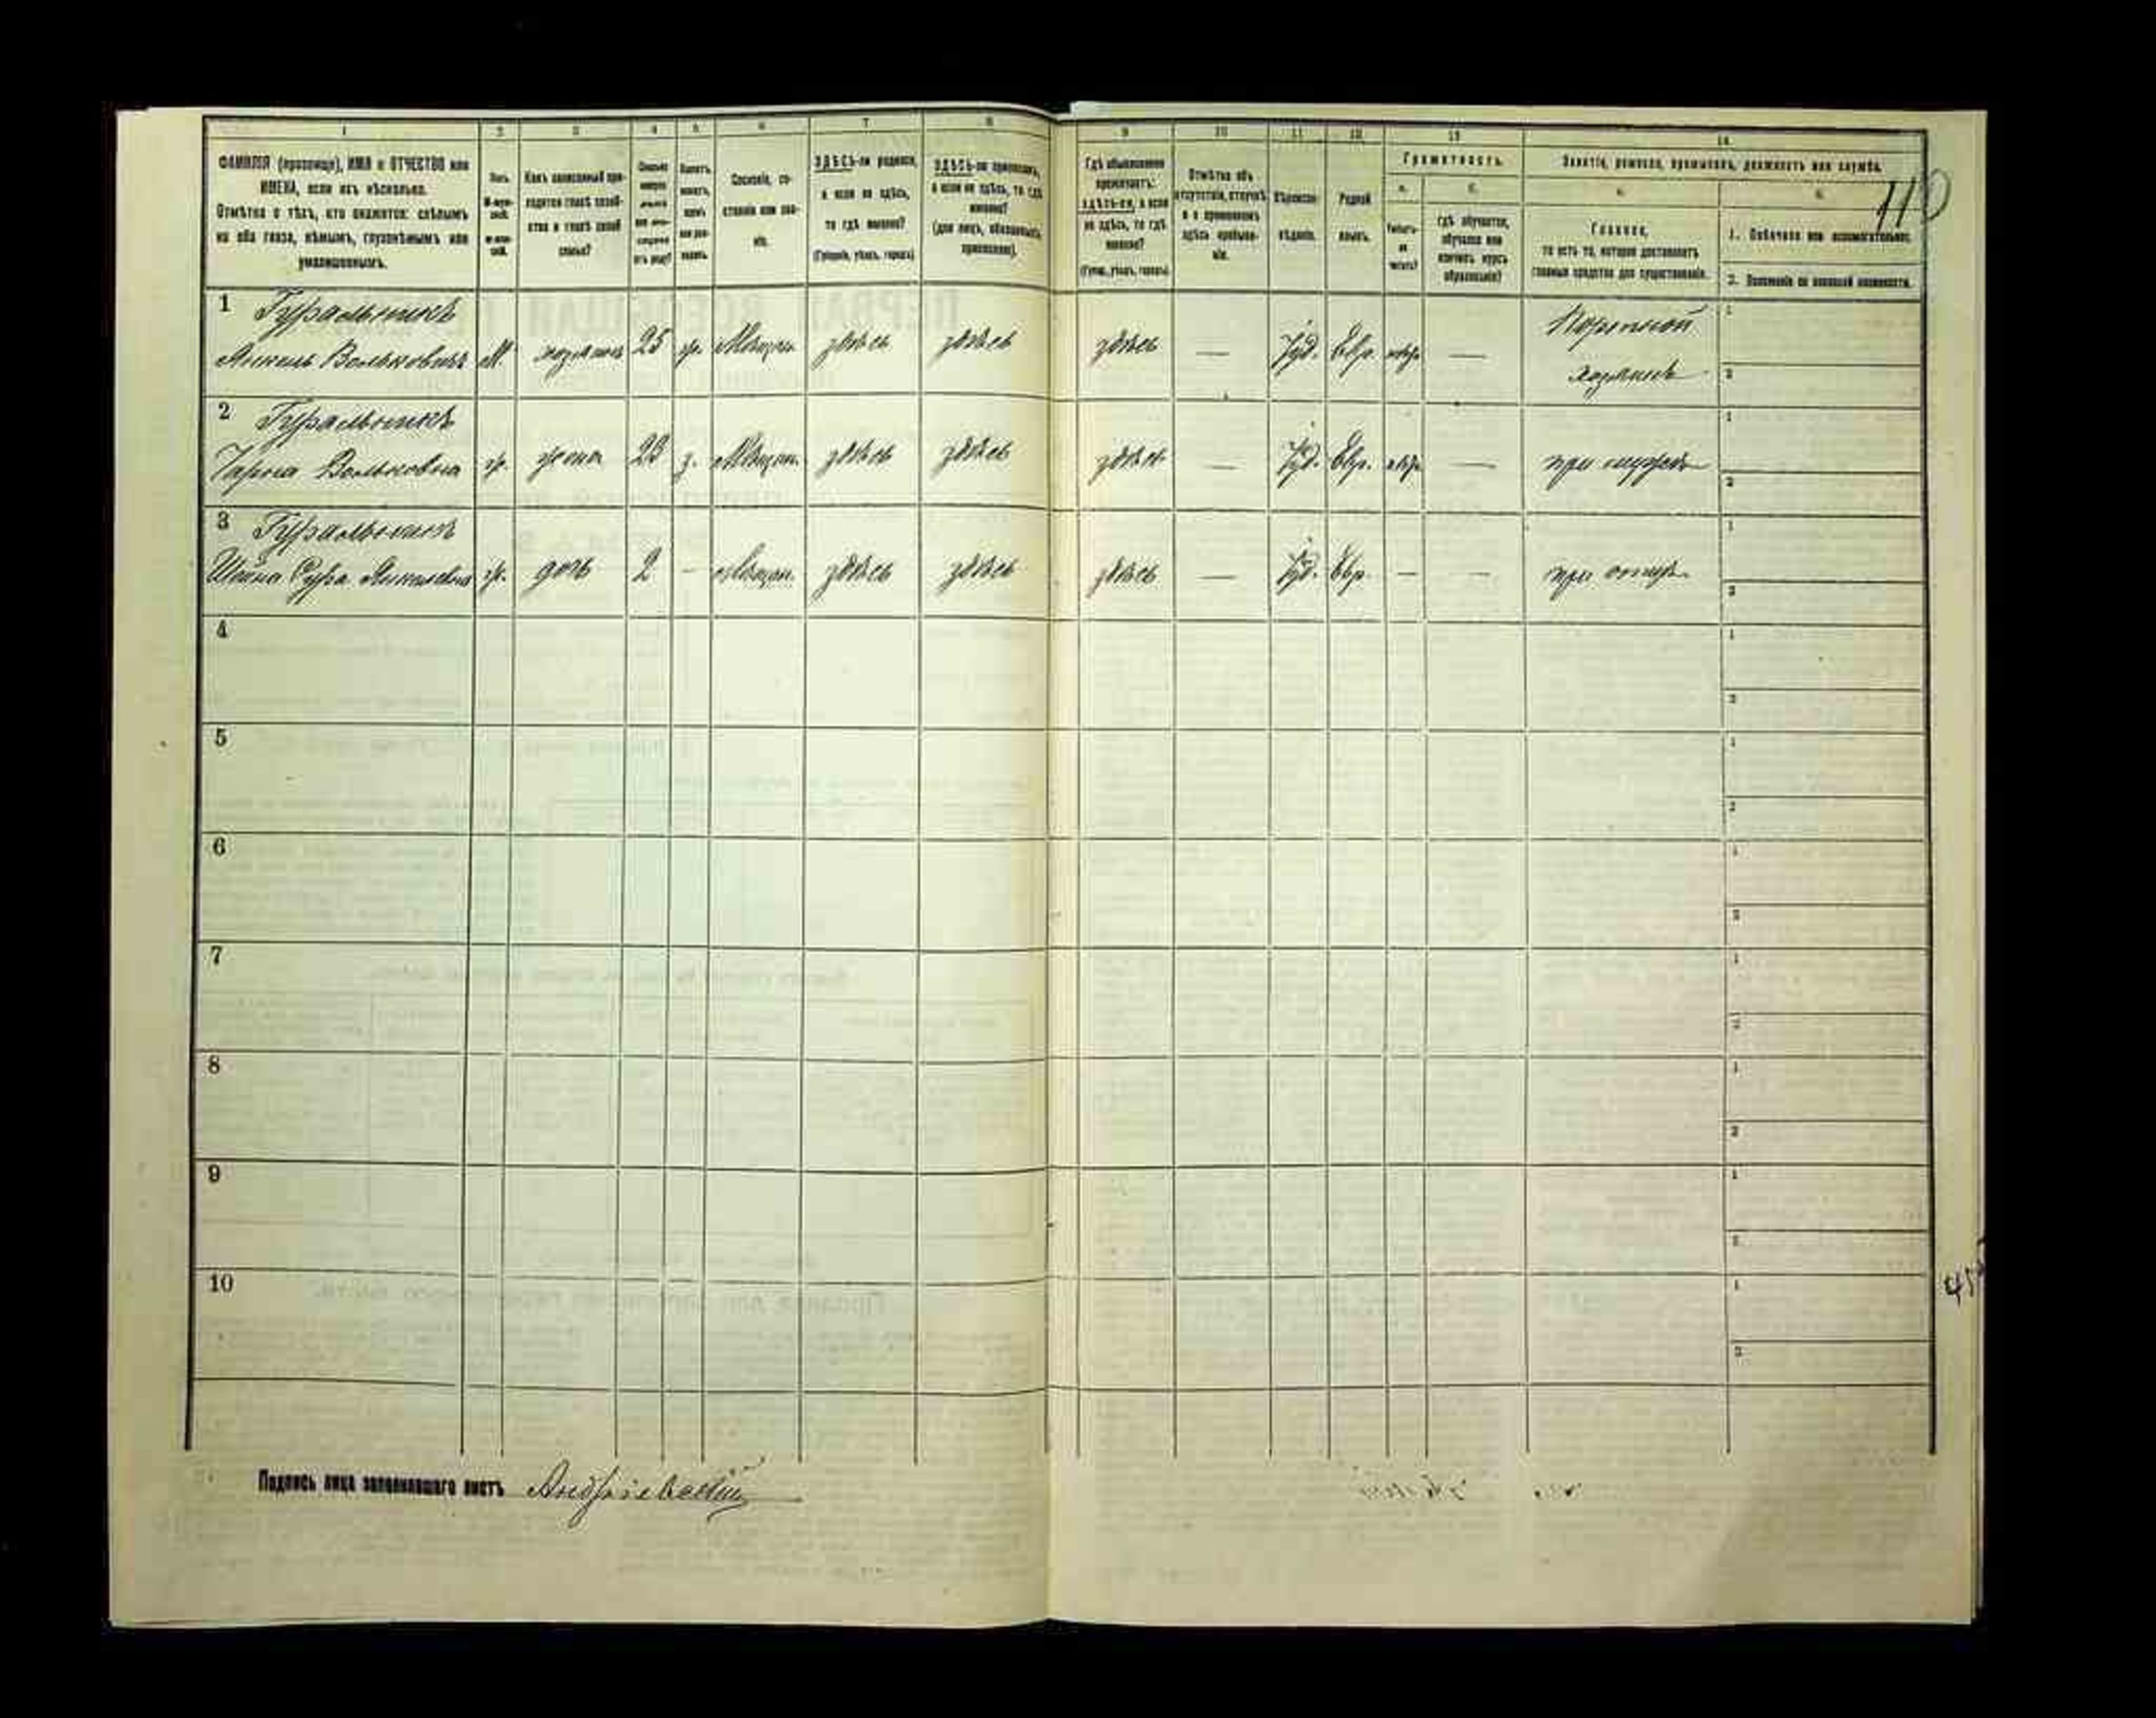 1 2 3 4 5 6 7 8 9 10 11 12 13 14
ФАМИЛІЯ (прозвище), ИМЯ и ОТЧЕСТВО или
ИМЕНА, если ихъ нѣсколько.
Отмѣтка о тѣхъ, кто окажется: слѣпымъ
на оба глаза, нѣмымъ, глухонѣмымъ или
умалишеннымъ.
Полъ.
Какъ записанный при-
ходится главѣ хозяй-
ства и главѣ своей
семьи?
Сословіе, со-
стояніе или зва-
ніе.
ЗДѢСЬ-ли родился,
а если не здѣсь,
то гдѣ именно?
(Губернія, уѣздъ, городъ)
ЗДѢСЬ-ли приписанъ,
а если не здѣсь, то гдѣ
именно?
(для лицъ, обязанныхъ
припискою).
Гдѣ обыкновенно
проживаетъ:
здѣсь-ли, а если
не здѣсь, то гдѣ
именно?
(Губер., уѣздъ, городъ)
Отмѣтка объ
отсутствіи, отлучкѣ
и о временномъ
здѣсь пребыва-
ніи.
Вѣроиспо-
вѣданіе.
Родной
языкъ.
Грамотность.
а.
Умѣетъ-
ли
читать?
б.
гдѣ обучается,
обучался или
кончилъ курсъ
образованія?
Занятіе, ремесло, промыселъ, должность или служба.
а.
Главное,
то есть то, которое доставляетъ
главныя средства для существованія.
б.
1. Побочное или вспомогательное.
2. Положеніе по воинской повинности.
110
1 Гуральникъ
Анкель Вольковичъ М. хозяинъ 25 ж. Мѣщан. здѣсь здѣсь здѣсь — Іуд. Евр. — хозяинъ
2 Гуральникъ
Вольковна ж. жена 23 з. Мѣщан. здѣсь здѣсь здѣсь — Іуд. Евр. — при мужѣ
3 Гуральникъ
Шейна Сура Анкелевна ж. дочь 2 - Мѣщан. здѣсь здѣсь здѣсь — Іуд. Евр. — — при отцѣ
4
5
6
7
8
9
10
Подпись лица заполнившаго листъ Андріевскій